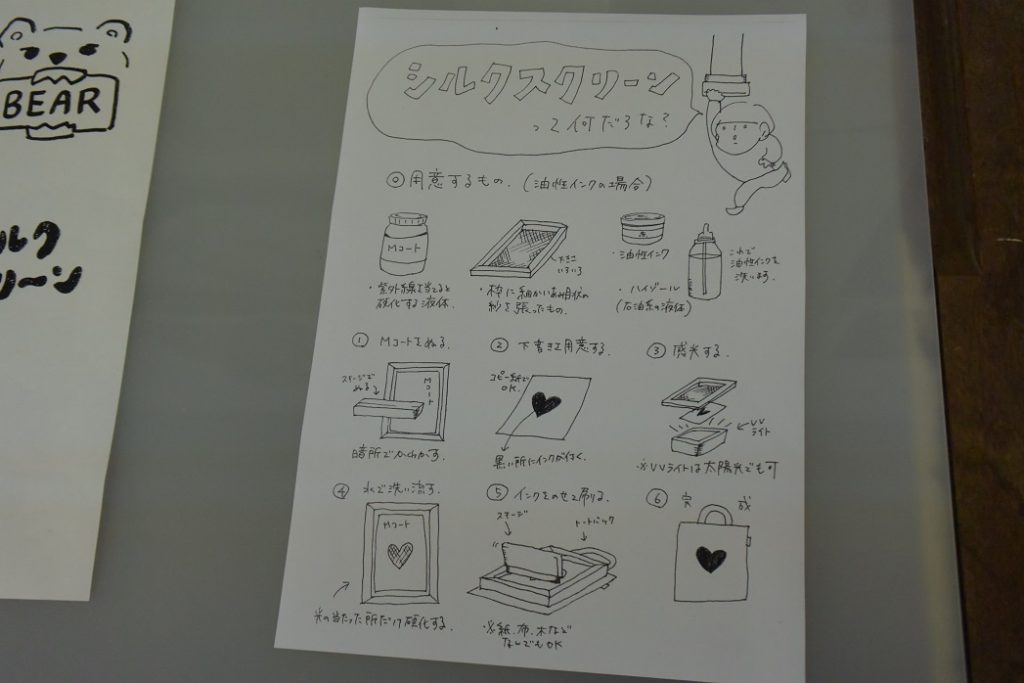 BEAR
ルク
リーン
シルクスクリーン
って何だろな?
◎用意するもの.(油性インクの場合)
Mコート
・紫外線を当てると
硬化する液体.
大きさ
いろいろ
・枠に細かいあみ目状の
紗を張ったもの.
・油性インク
・ハイゾール
(石油系の液体)
これで
油性インクを
洗います.
① Mコートをぬる.
スキージで
ぬる
Mコート
暗所でかわかす.
② 下書きを用意する.
コピー紙で
OK.
黒い所にインクが付く.
③ 感光する.
UV
ライト
※UVライトは太陽光でも可
④ 水で洗い流す.
Mコート
光の当たった所だけ硬化する.
⑤ インクをのせて刷る.
スキージ
トートバック
※紙、布、木など
なんでもOK
⑥ 完成